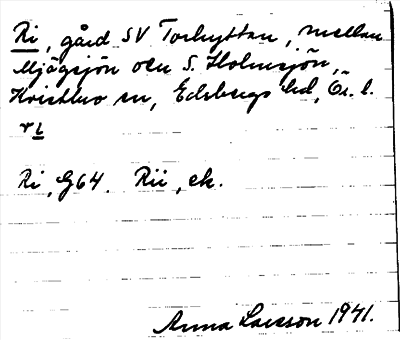 Ri, gård SV Torhyttan, mellan
Mjögsjön och S. Holmsjön,
Kristbro sn, Edsbergs hd, Ör. l.
ri
Ri, G64. Rii, ek.
Anna Larsson 1941.